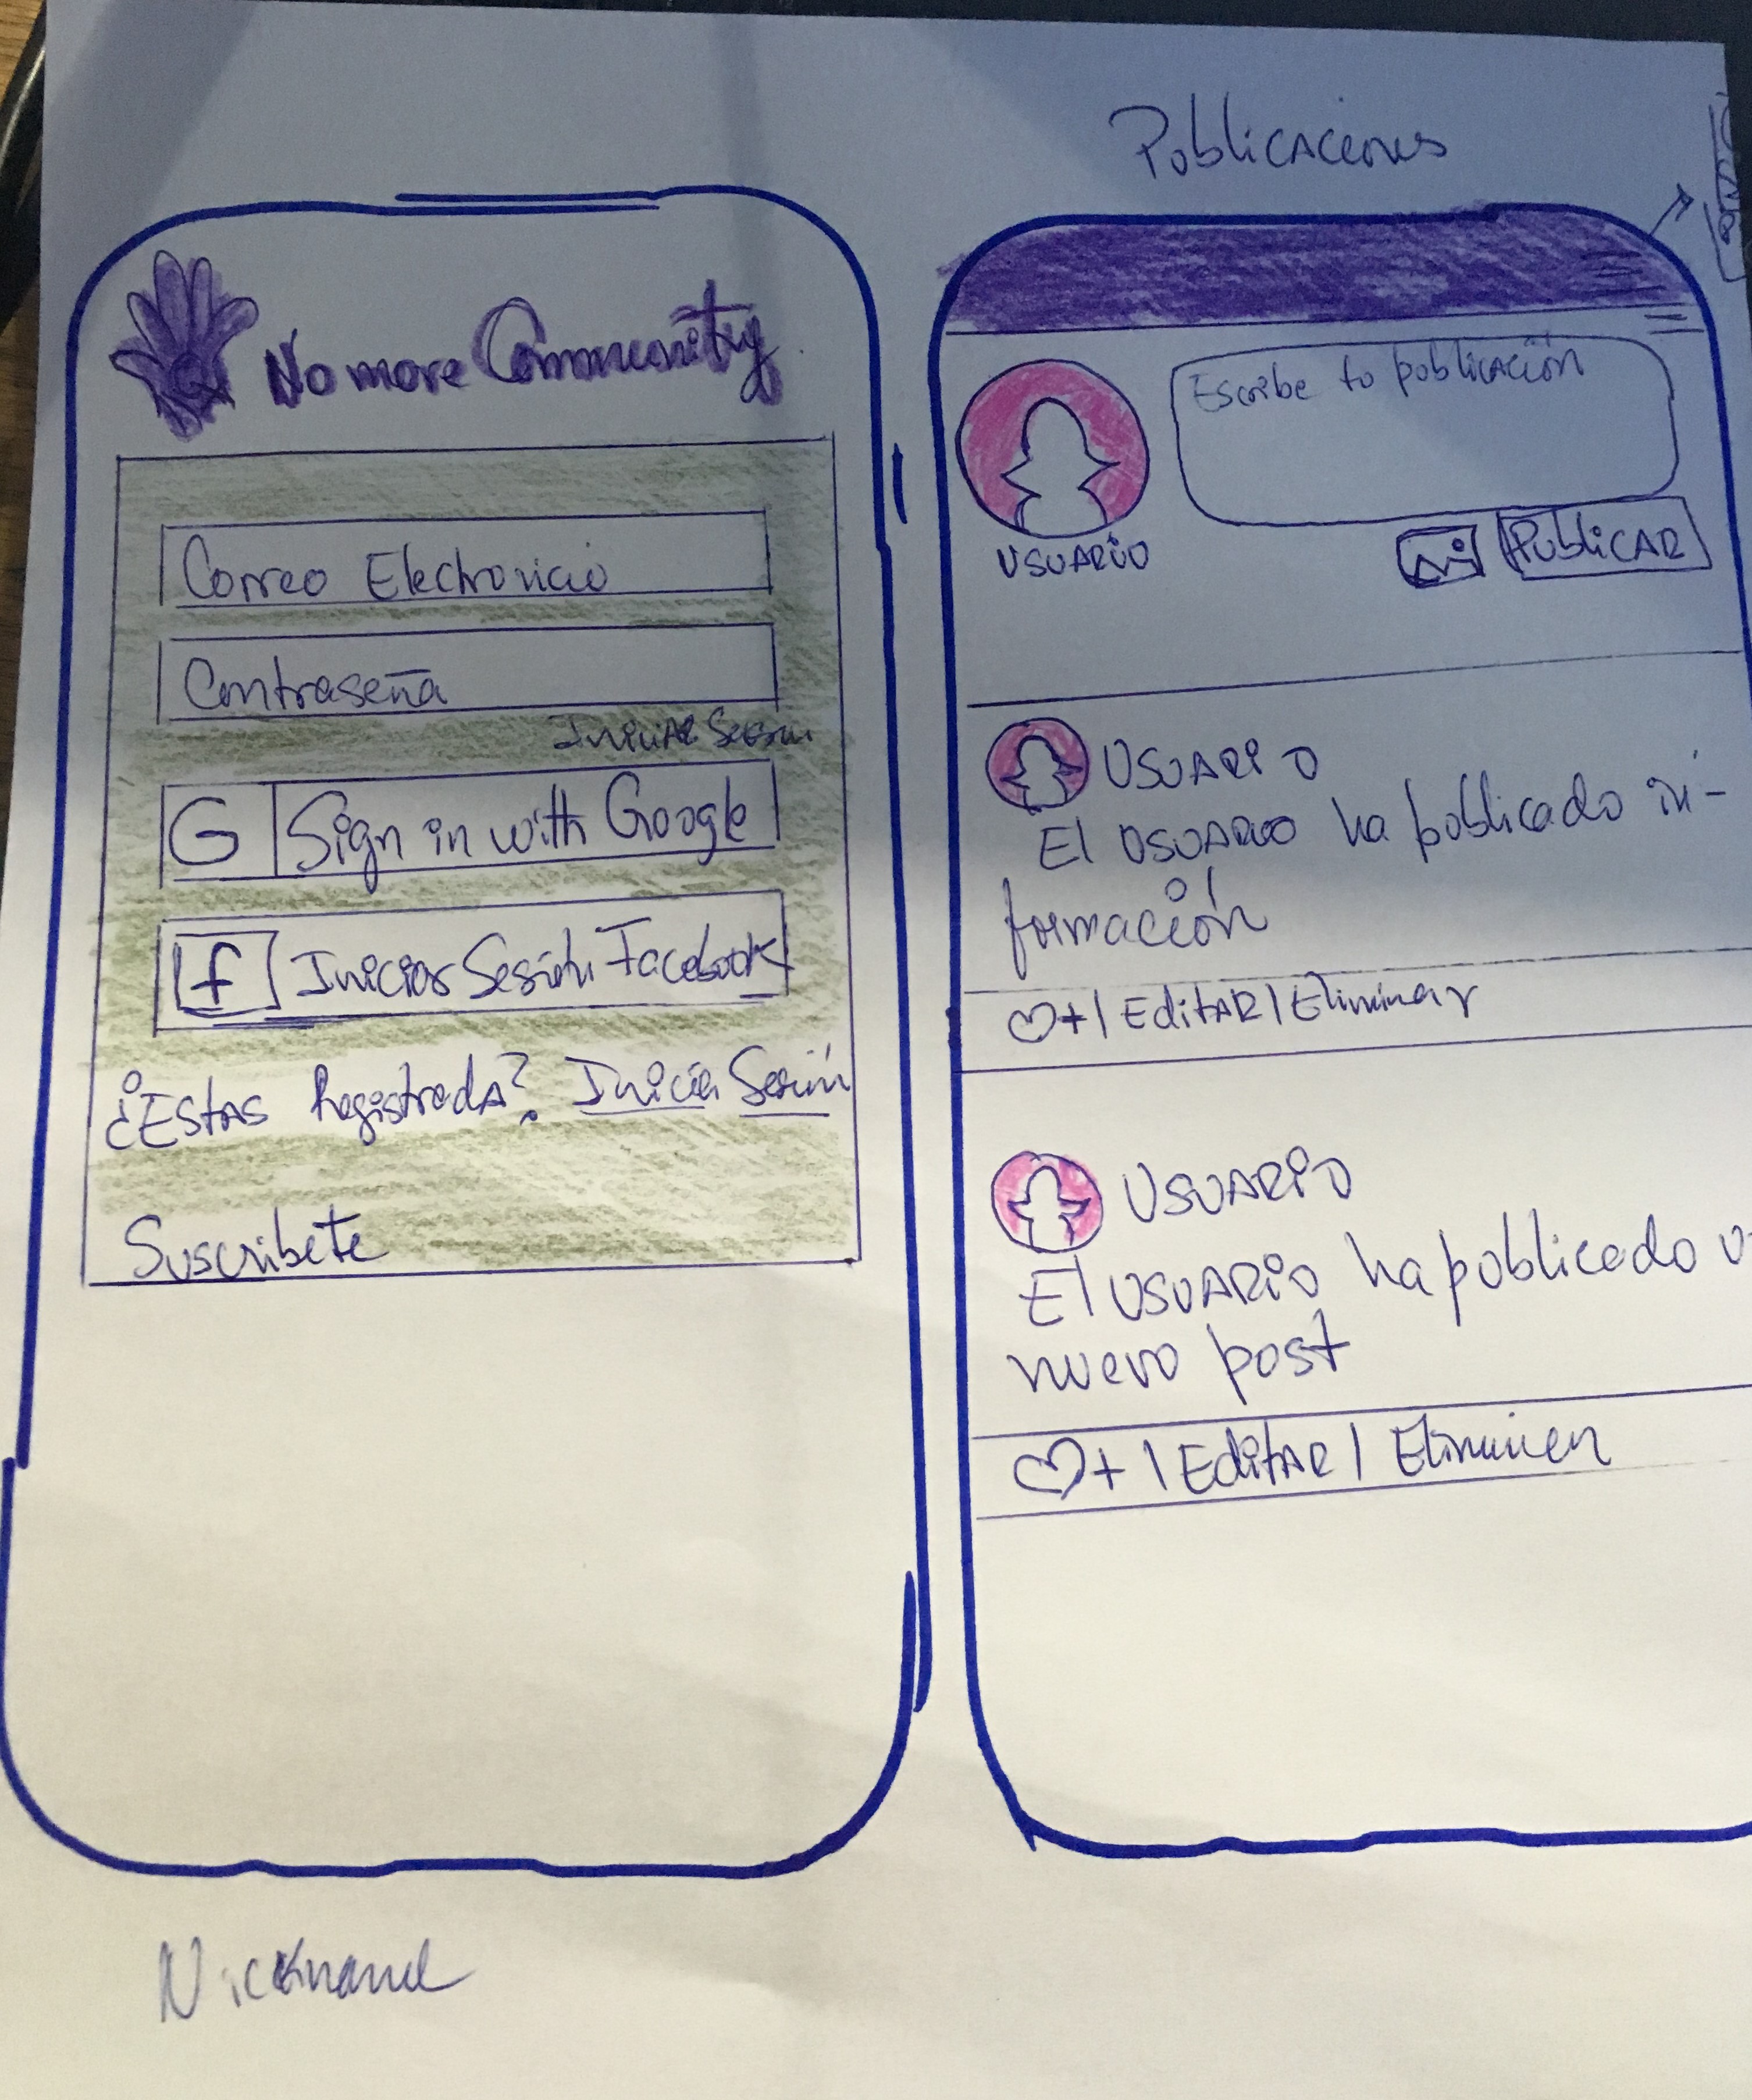 No more Community
Correo Electronico
Contraseña
Iniciar Sesion
G Sign in with Google
f Iniciar Sesión Facebook
¿Estas Registrada? Inicia Sesión
Suscribete
Nickname
Publicaciones
Escribe tu publicación
USUARIO
Publicar
USUARIO
El usuario ha publicado in-
formación
+ | Editar | Eliminar
USUARIO
El usuario ha publicado
nuevo post
+ | Editar | Eliminar